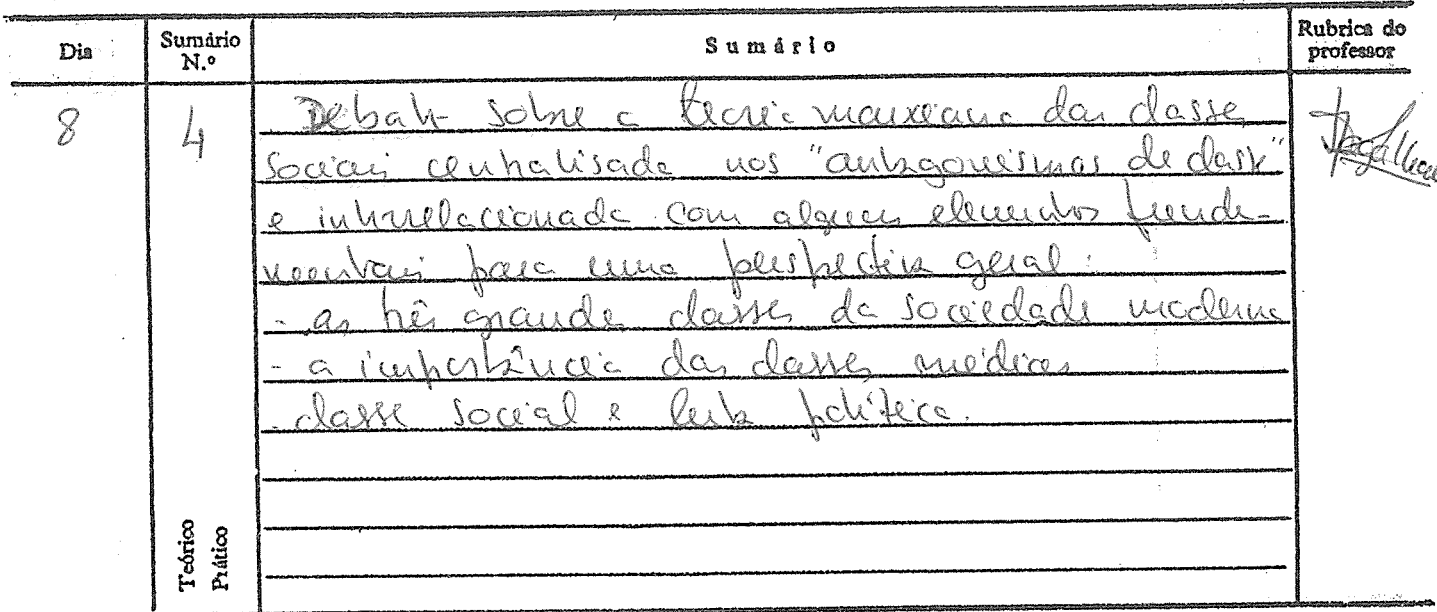 Dia
Sumário N.º
Sumário
Rubrica do professor
8
4
Debate sobre a teoria marxiana das classes
sociais centralisada nos "antagonismos de classe"
e interrelacionada com alguns elementos funda-
mentais para uma perspectiva geral:
- as três grandes classes da sociedade moderna
- a importância das classes médias
- classe social e luta política.
Teórico
Prático